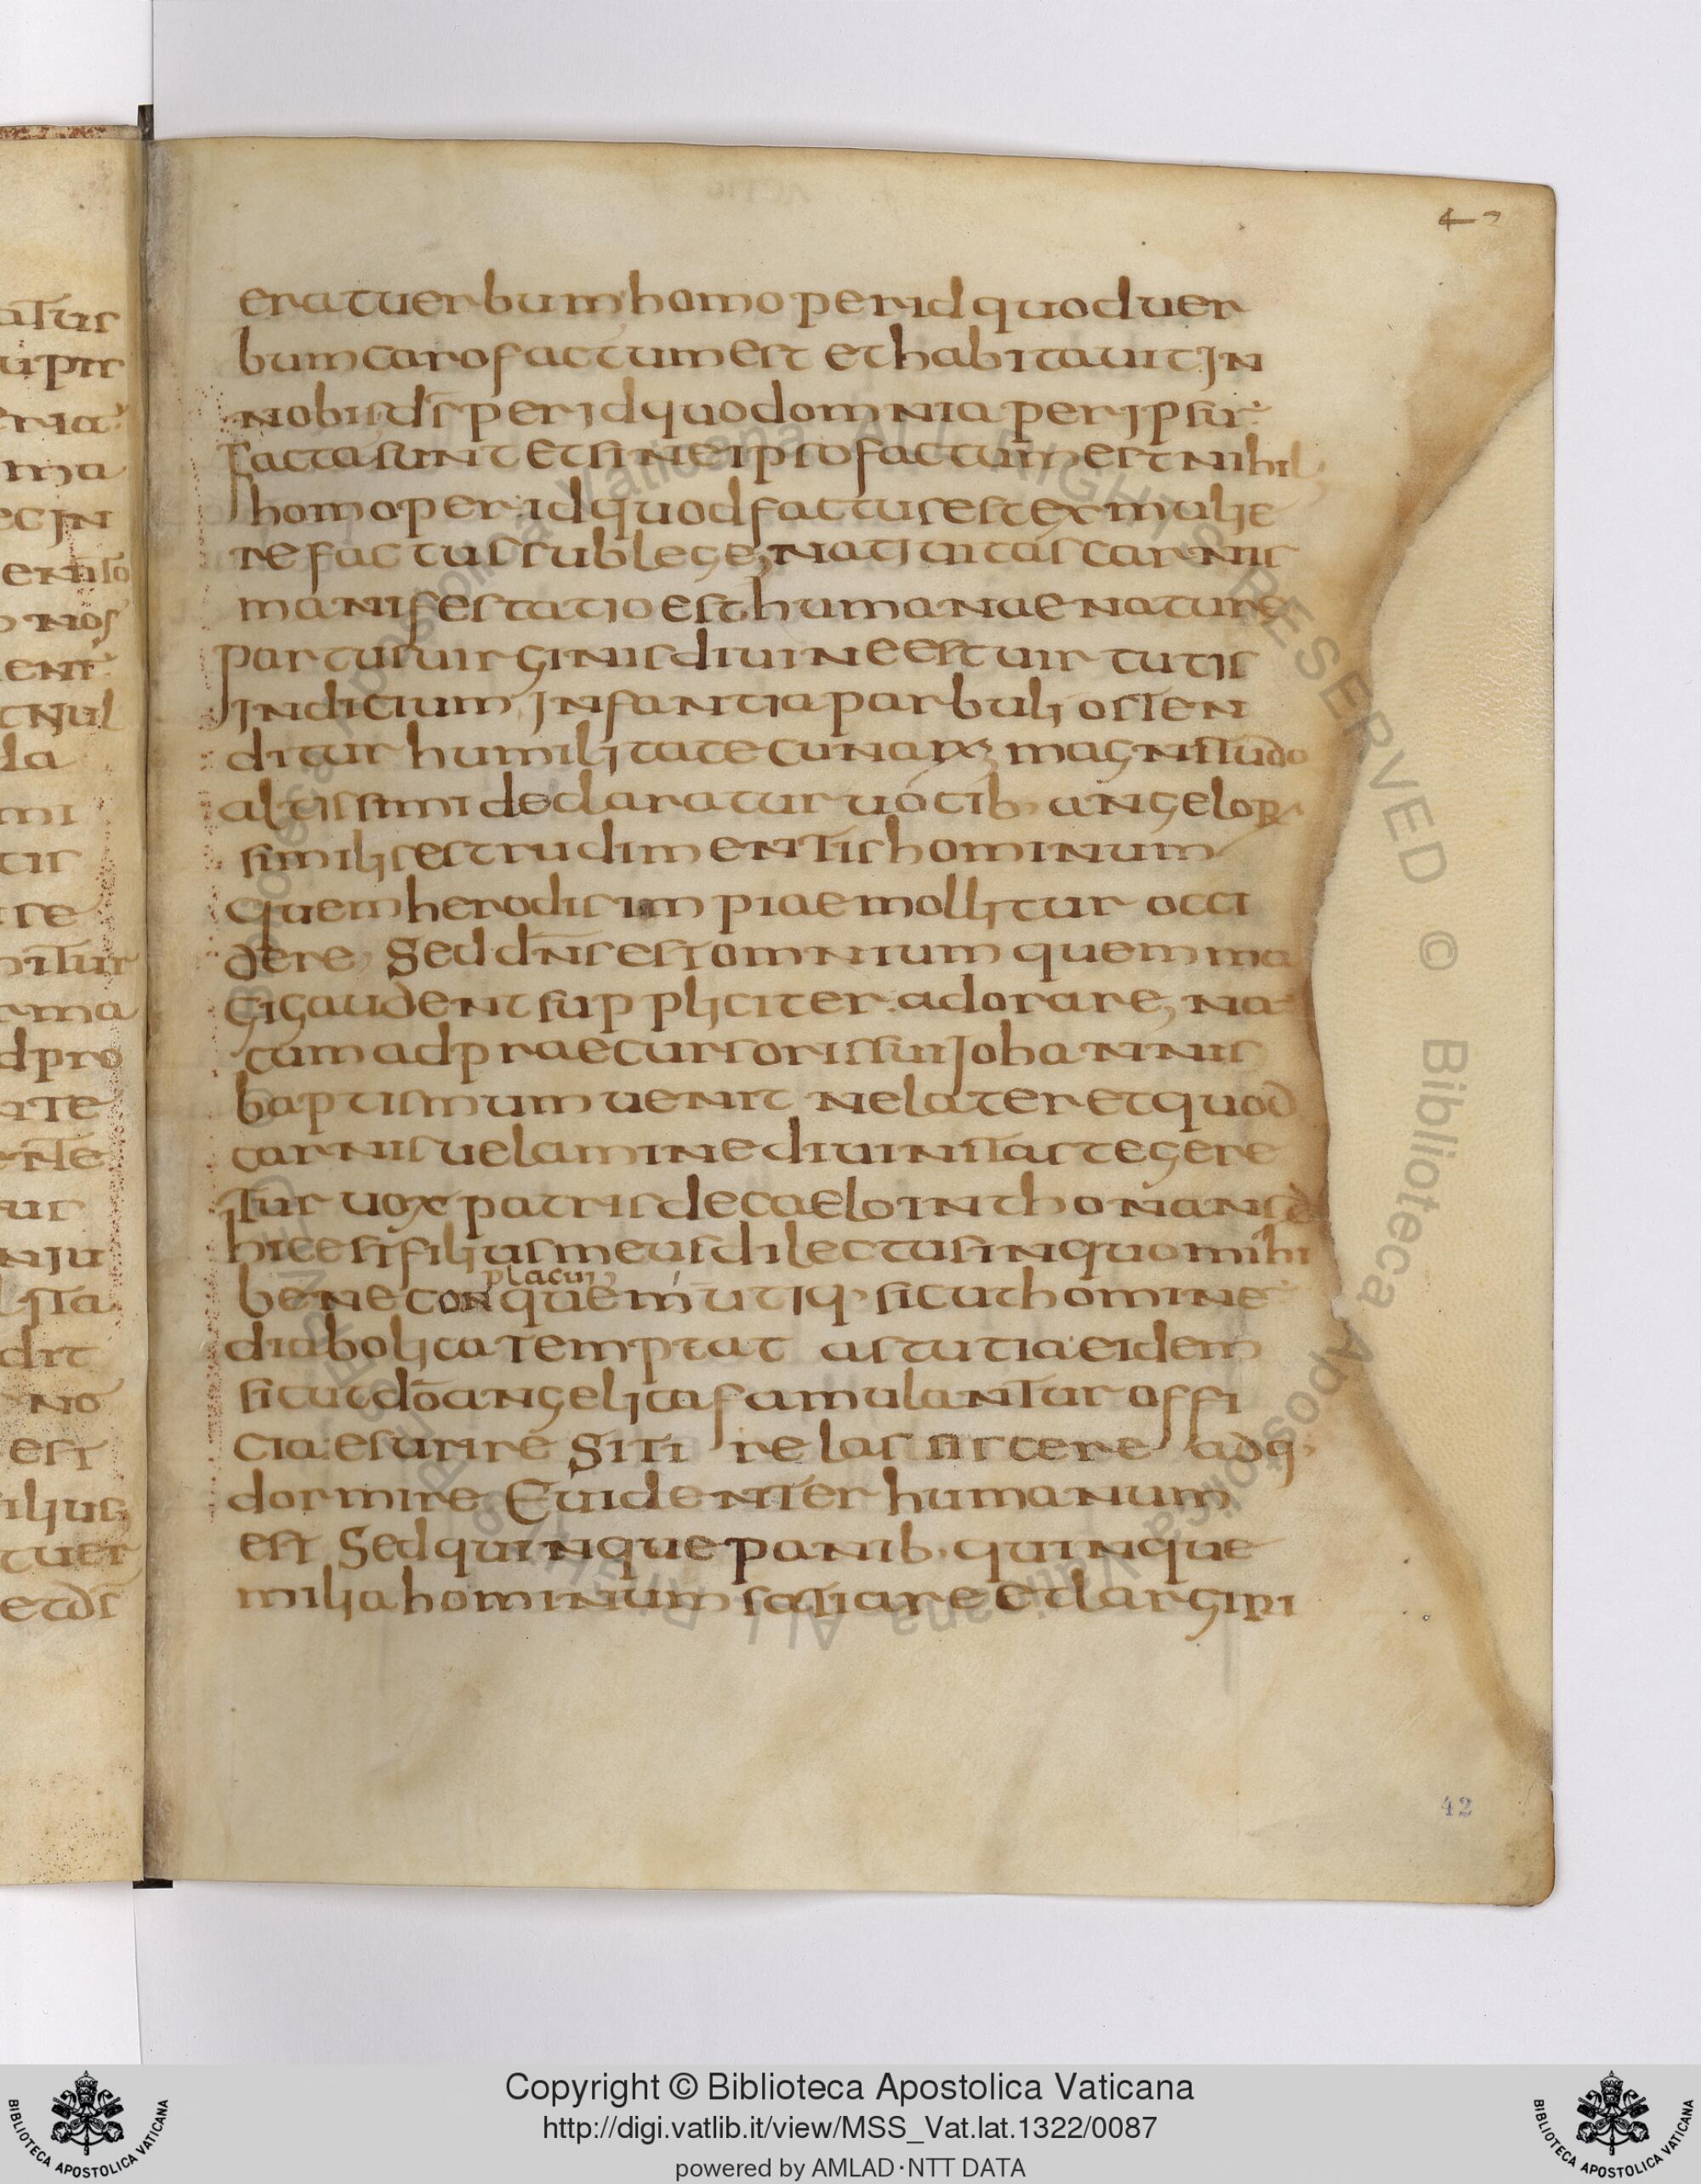 42
erat uerbum homo per id quod uer
bum caro factum est et habitauit in
nobis d̅s̅ per id quod omnia per ipsu̅
facta sunt et sine ipso factum est nihil
homo per id quod factus est ex mulie
re factus sub lege, natiuitas carnis
manifestatio est humanae nature
partus uirginis diuine est uirtutis
indicium, infantia parbuli osten
ditur humilitate cunarꝝ magnitudo
altissimi declaratur uocib· angeloꝝ
similis est rudimentis hominum
quem herodis impiae mollitur occi
dere, Sed d̅n̅s est omnium quem ma
gi gaudent suppliciter adorare, na
cum ad praecursoris sui Johannis
baptismum uenit ne lateret quod
carnis uelamine diuinitas tegere
tur uox patris de caelo inthonans d̅
hic est filius meus dilectus in quo mihi
placui
bene con quem utiq· sicut homine̅
diabolica temptat astutia eidem
sicut d̅o̅ angelica famulantur offi
cia esurire Siti re lassiscere adq·
dormire Euidenter humanum
est Sed quinque panib· quinque
milia hominum satiare et largiri
42
atus
eria
ma
ec in
nos
la
mi
tis
re
rma
d pro
us
dit
no
est
ilius
tuer
et d̅s̅
© Biblioteca Apostolica Vaticana ALL RIGHTS RESERVED © Biblioteca Apostolica Vaticana ALL RIGHTS RESERVED
Copyright © Biblioteca Apostolica Vaticana
http://digi.vatlib.it/view/MSS_Vat.lat.1322/0087
powered by AMLAD·NTT DATA
BIBLIOTECA APOSTOLICA VATICANA
BIBLIOTECA APOSTOLICA VATICANA